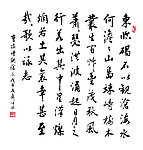 東臨碣石以觀滄海水
何澹澹山島竦峙樹木
叢生百草豐茂秋風
蕭瑟洪波湧起日月之
行若出其中星漢燦
爛若出其裏幸甚至
哉歌以詠志
曹操詩觀滄海